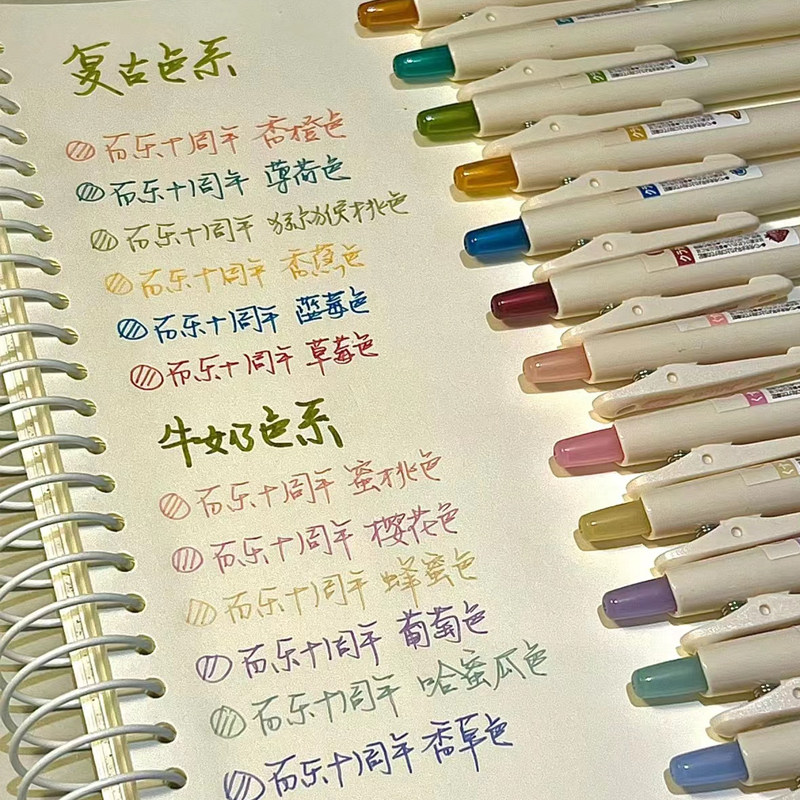 复古色系
百乐十周年 香橙色
百乐十周年 薄荷色
百乐十周年 猕猴桃色
百乐十周年 香蕉色
百乐十周年 蓝莓色
百乐十周年 草莓色
牛奶色系
百乐十周年 蜜桃色
百乐十周年 樱花色
百乐十周年 蜂蜜色
百乐十周年 葡萄色
百乐十周年 哈蜜瓜色
百乐十周年 香草色